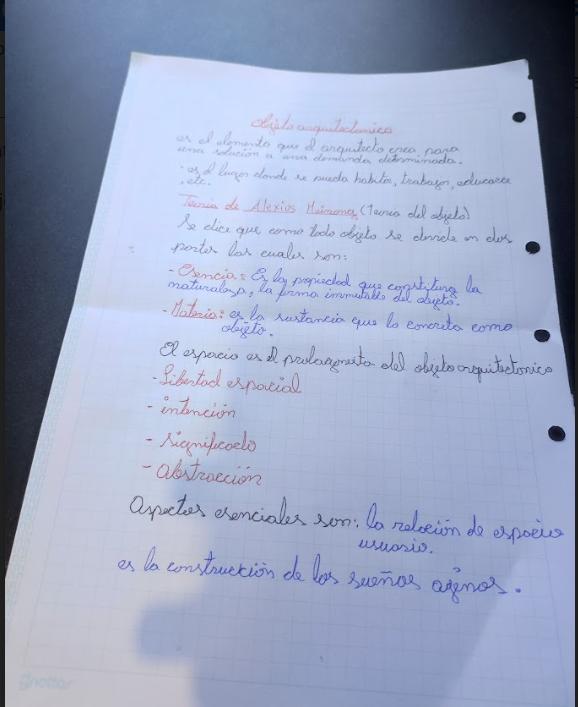 Objeto arquitectonico
es el elemento que el arquitecto crea para
una solución a una demanda determinada.
· es el lugar donde se pueda habitar, trabajar, educarse
, etc.
Teoria de Alexios (Teoria del objeto)
Se dice que como todo objeto se divide en dos
partes las cuales son:
- Esencia: Es la propiedad que constituye la
naturaleza, la forma inmutable del objeto.
- Materia: es la sustancia que lo concreta como
objeto.
El espacio es el protagonista del objeto arquitectonico
- Libertad espacial
- intención
- significado
- Abstracción
Aspectos esenciales son: la relación de espacio
usuario.
es la construcción de los sueños agenos.